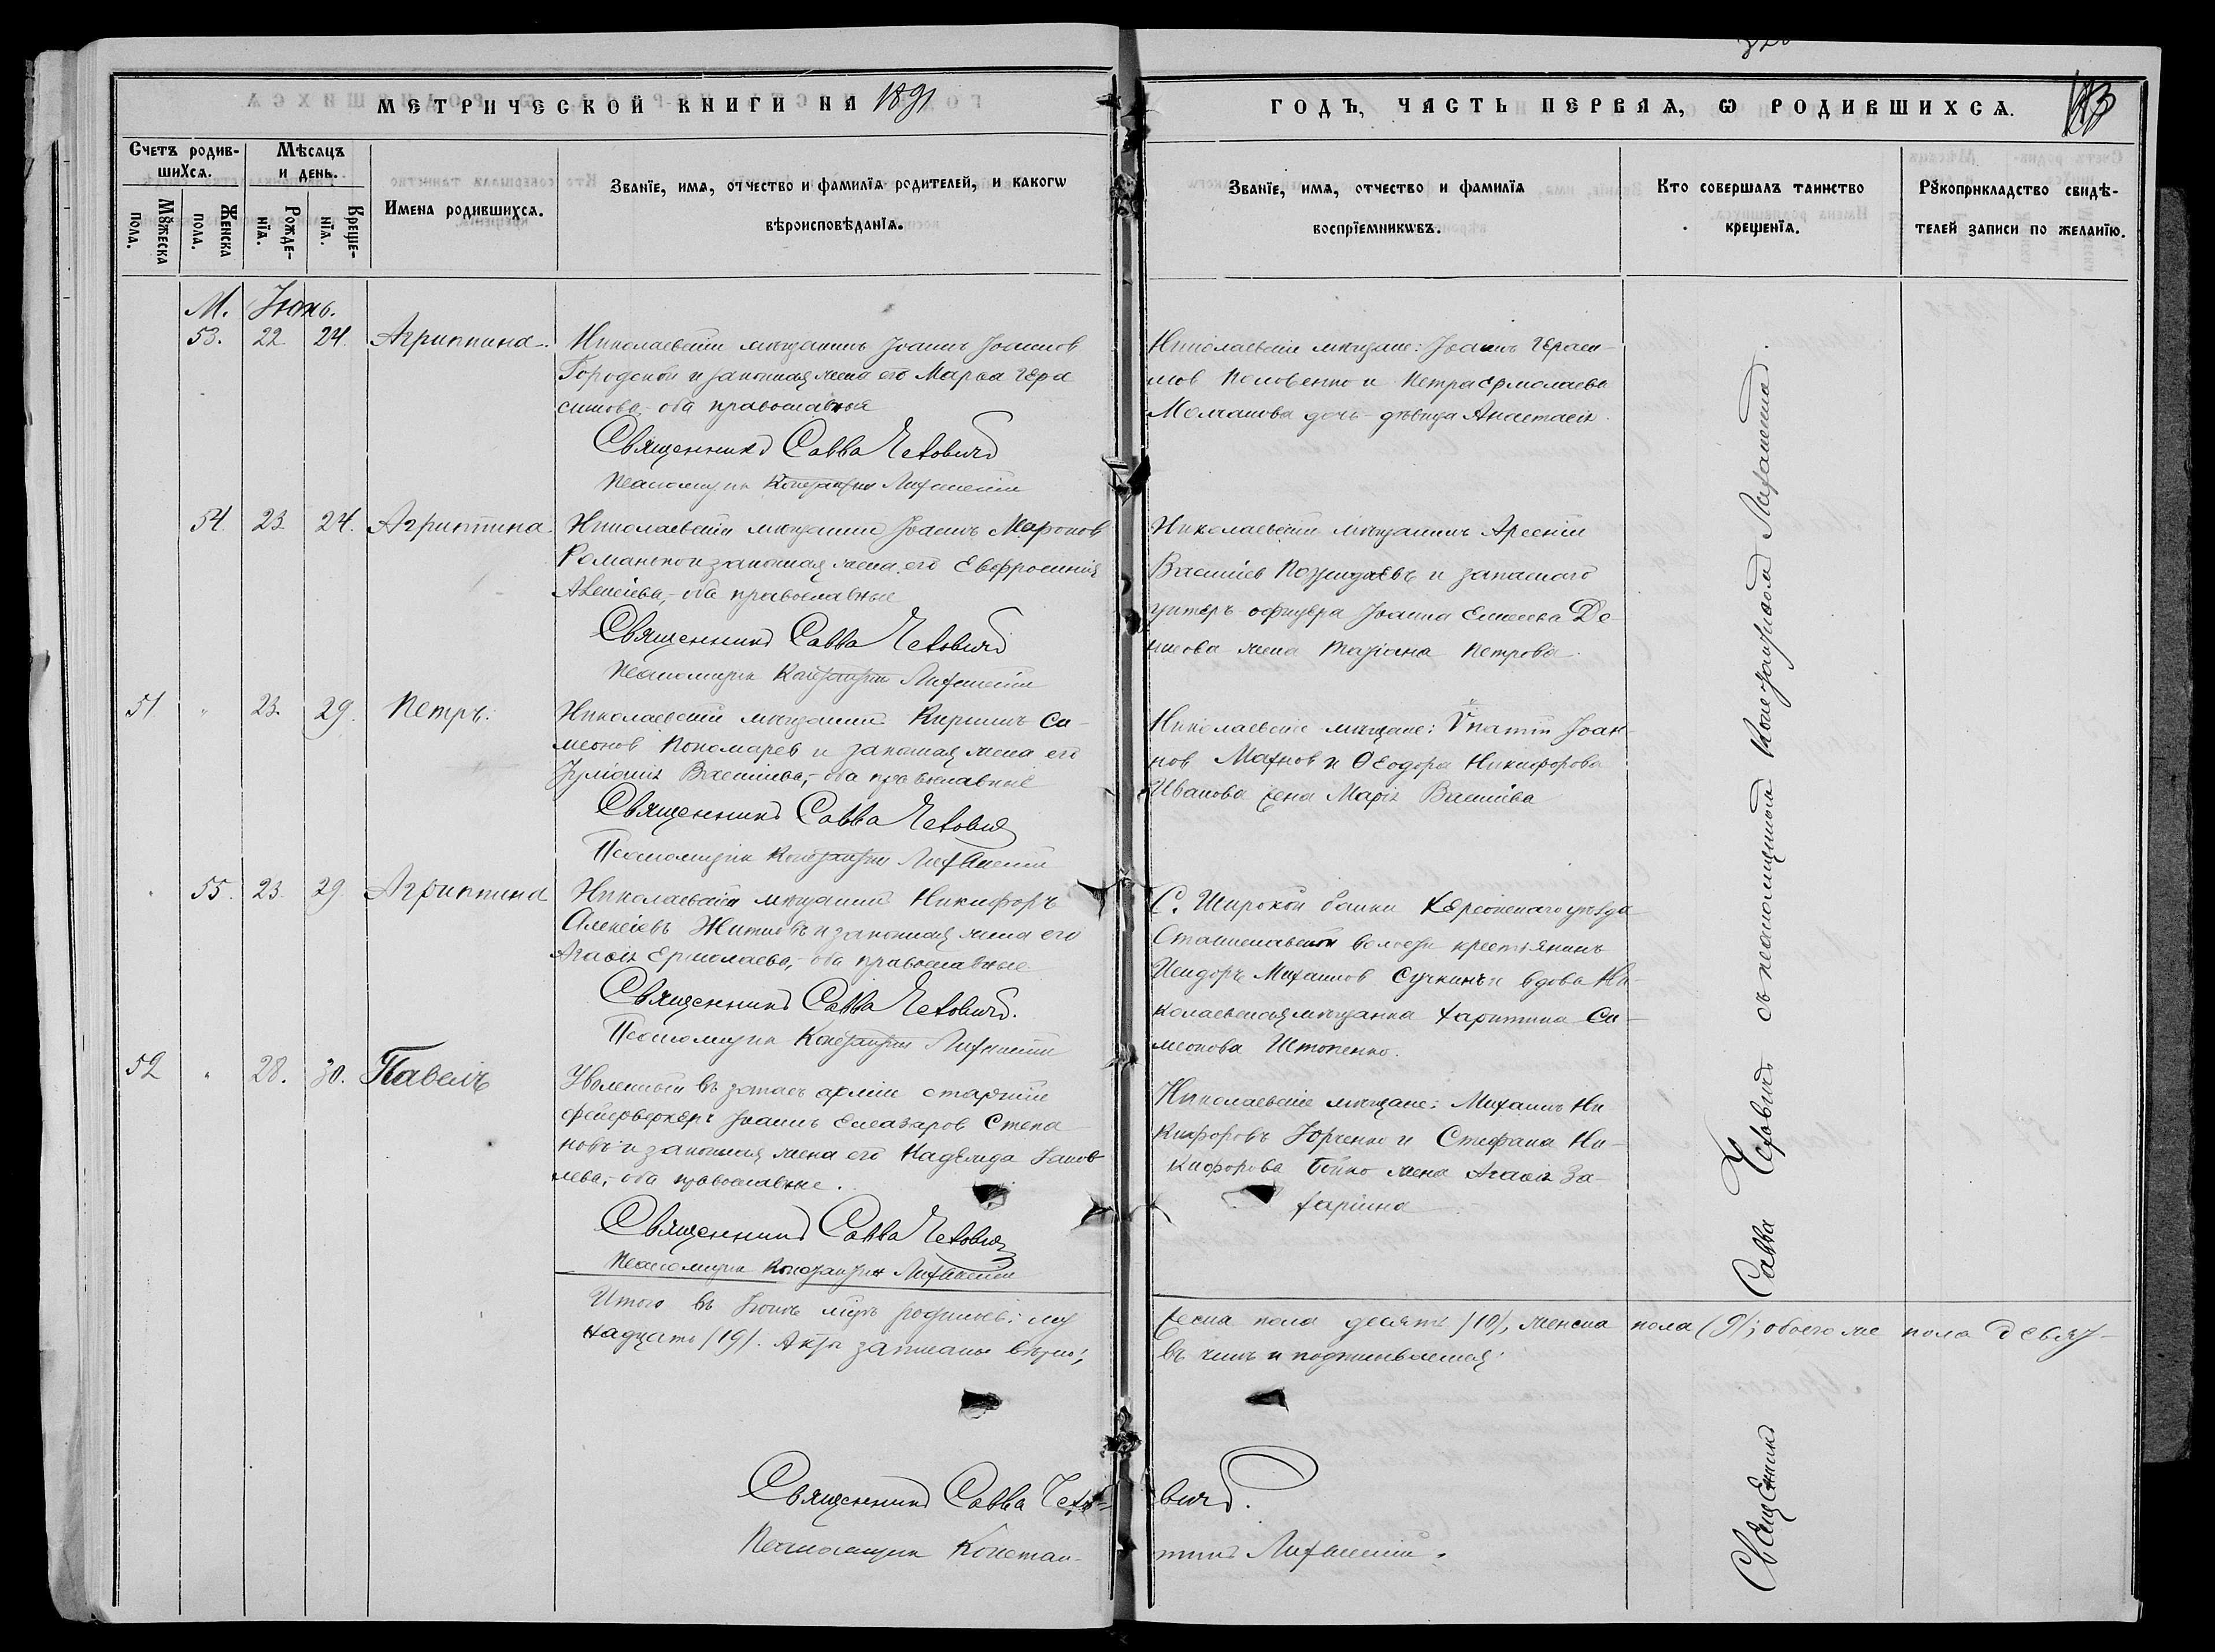 МЕТРИЧЕСКОЙ КНИГИ НА 1891
ГОДЪ, ЧАСТЬ ПЕРВАЯ, Ѡ РОДИВШИХСѦ.
Счетъ родив-
шихсѧ.
Мѣсѧцъ
и день.
Мꙋжеска
пола.
Женска
пола.
Рожде-
нїѧ.
Креще-
нїѧ.
Имена родившихсѧ.
Званїе, имѧ, отчество и фамилїѧ родителей, и какогѡ
вѣроисповѣданїѧ.
Званїе, имѧ, отчество и фамилїѧ
воспрїемникѡвъ.
Кто совершалъ таинство
крещенїѧ.
Рꙋкоприкладство свидѣ-
телей записи по желанїю.
М. Іюнь.
53. 22. 24. Агриппина.
Николаевскій мѣщанинъ Іоаннъ Іоаннов
Городской и законная жена его Марѳа Гера
симова, оба православныя
Священникъ Савва Чехович
Псаломщик Константин Лифинскій
Николаевскіе мѣщане: Іоаннъ Герасы-
мов Половенко и Петра Ермолаева
дочь - дѣвица Анастасія.
54. 23. 24. Агриппина
Николаевскій мѣщанинъ Іоаннъ Миронов
Романенко и законная жена его Евфросинія
Алексіева, оба православные
Священникъ Савва Чехович
Псаломщик Константин
Николаевскій мѣщанинъ Арсеній
Василіев и запаснаго
унтеръ офицера Іоанна Елисеева Де
жена Татіана Петрова.
51 " 23. 29. Петръ.
Николаевскій мѣщанинъ Кириллъ Си-
меонов Пономарев и законная жена его
Іуліанія Василіева, оба православные
Священникъ Савва Чехович
Псаломщик Константин
Николаевскіе мѣщане: Ѵпатій Іоан
нов Махнов и Ѳеодора Никифорова
Иванова жена Марія Василіева
55. 23. 29. Агриппина
Николаевскій мѣщанинъ Никифоръ
Алексіевъ Житновъ и законная жена его
Агаѳія Ермолаева, оба православные.
Священникъ Савва Чехович.
Псаломщик Константин
С. Широкой балки Херсонскаго уѣзда
Станиславской волости крестьянинъ
Исидоръ Михаилов Сучкинъ и вдова Ни-
колаевская мѣщанка Харитина Си-
меонова
52 " 28. 30. Павелъ
Уволенный въ запасъ арміи старшій
фейерверкеръ Іоаннъ Елеазаров Степа
новъ и законная жена его Надежда Іаков
лева, оба православные.
Священникъ Савва Чехович
Псаломщик Константин
Николаевскіе мѣщане: Михаилъ Ни
кифоровъ Юрченко и Стефана Ни-
кифорова Бойко жена Агаѳія За-
харіина
Священникъ Савва Чехович съ псаломщиком Константином
Итого въ Іюнѣ м-цѣ родилось: муж
ческа пола десять /10/, женска пола (9); обоего же пола девят-
надцать /19/. Акты записаны вѣрно;
въ чемъ и подписываемся:
Священникъ Савва Чехо-
вич.
Псаломщик Констан-
тинъ